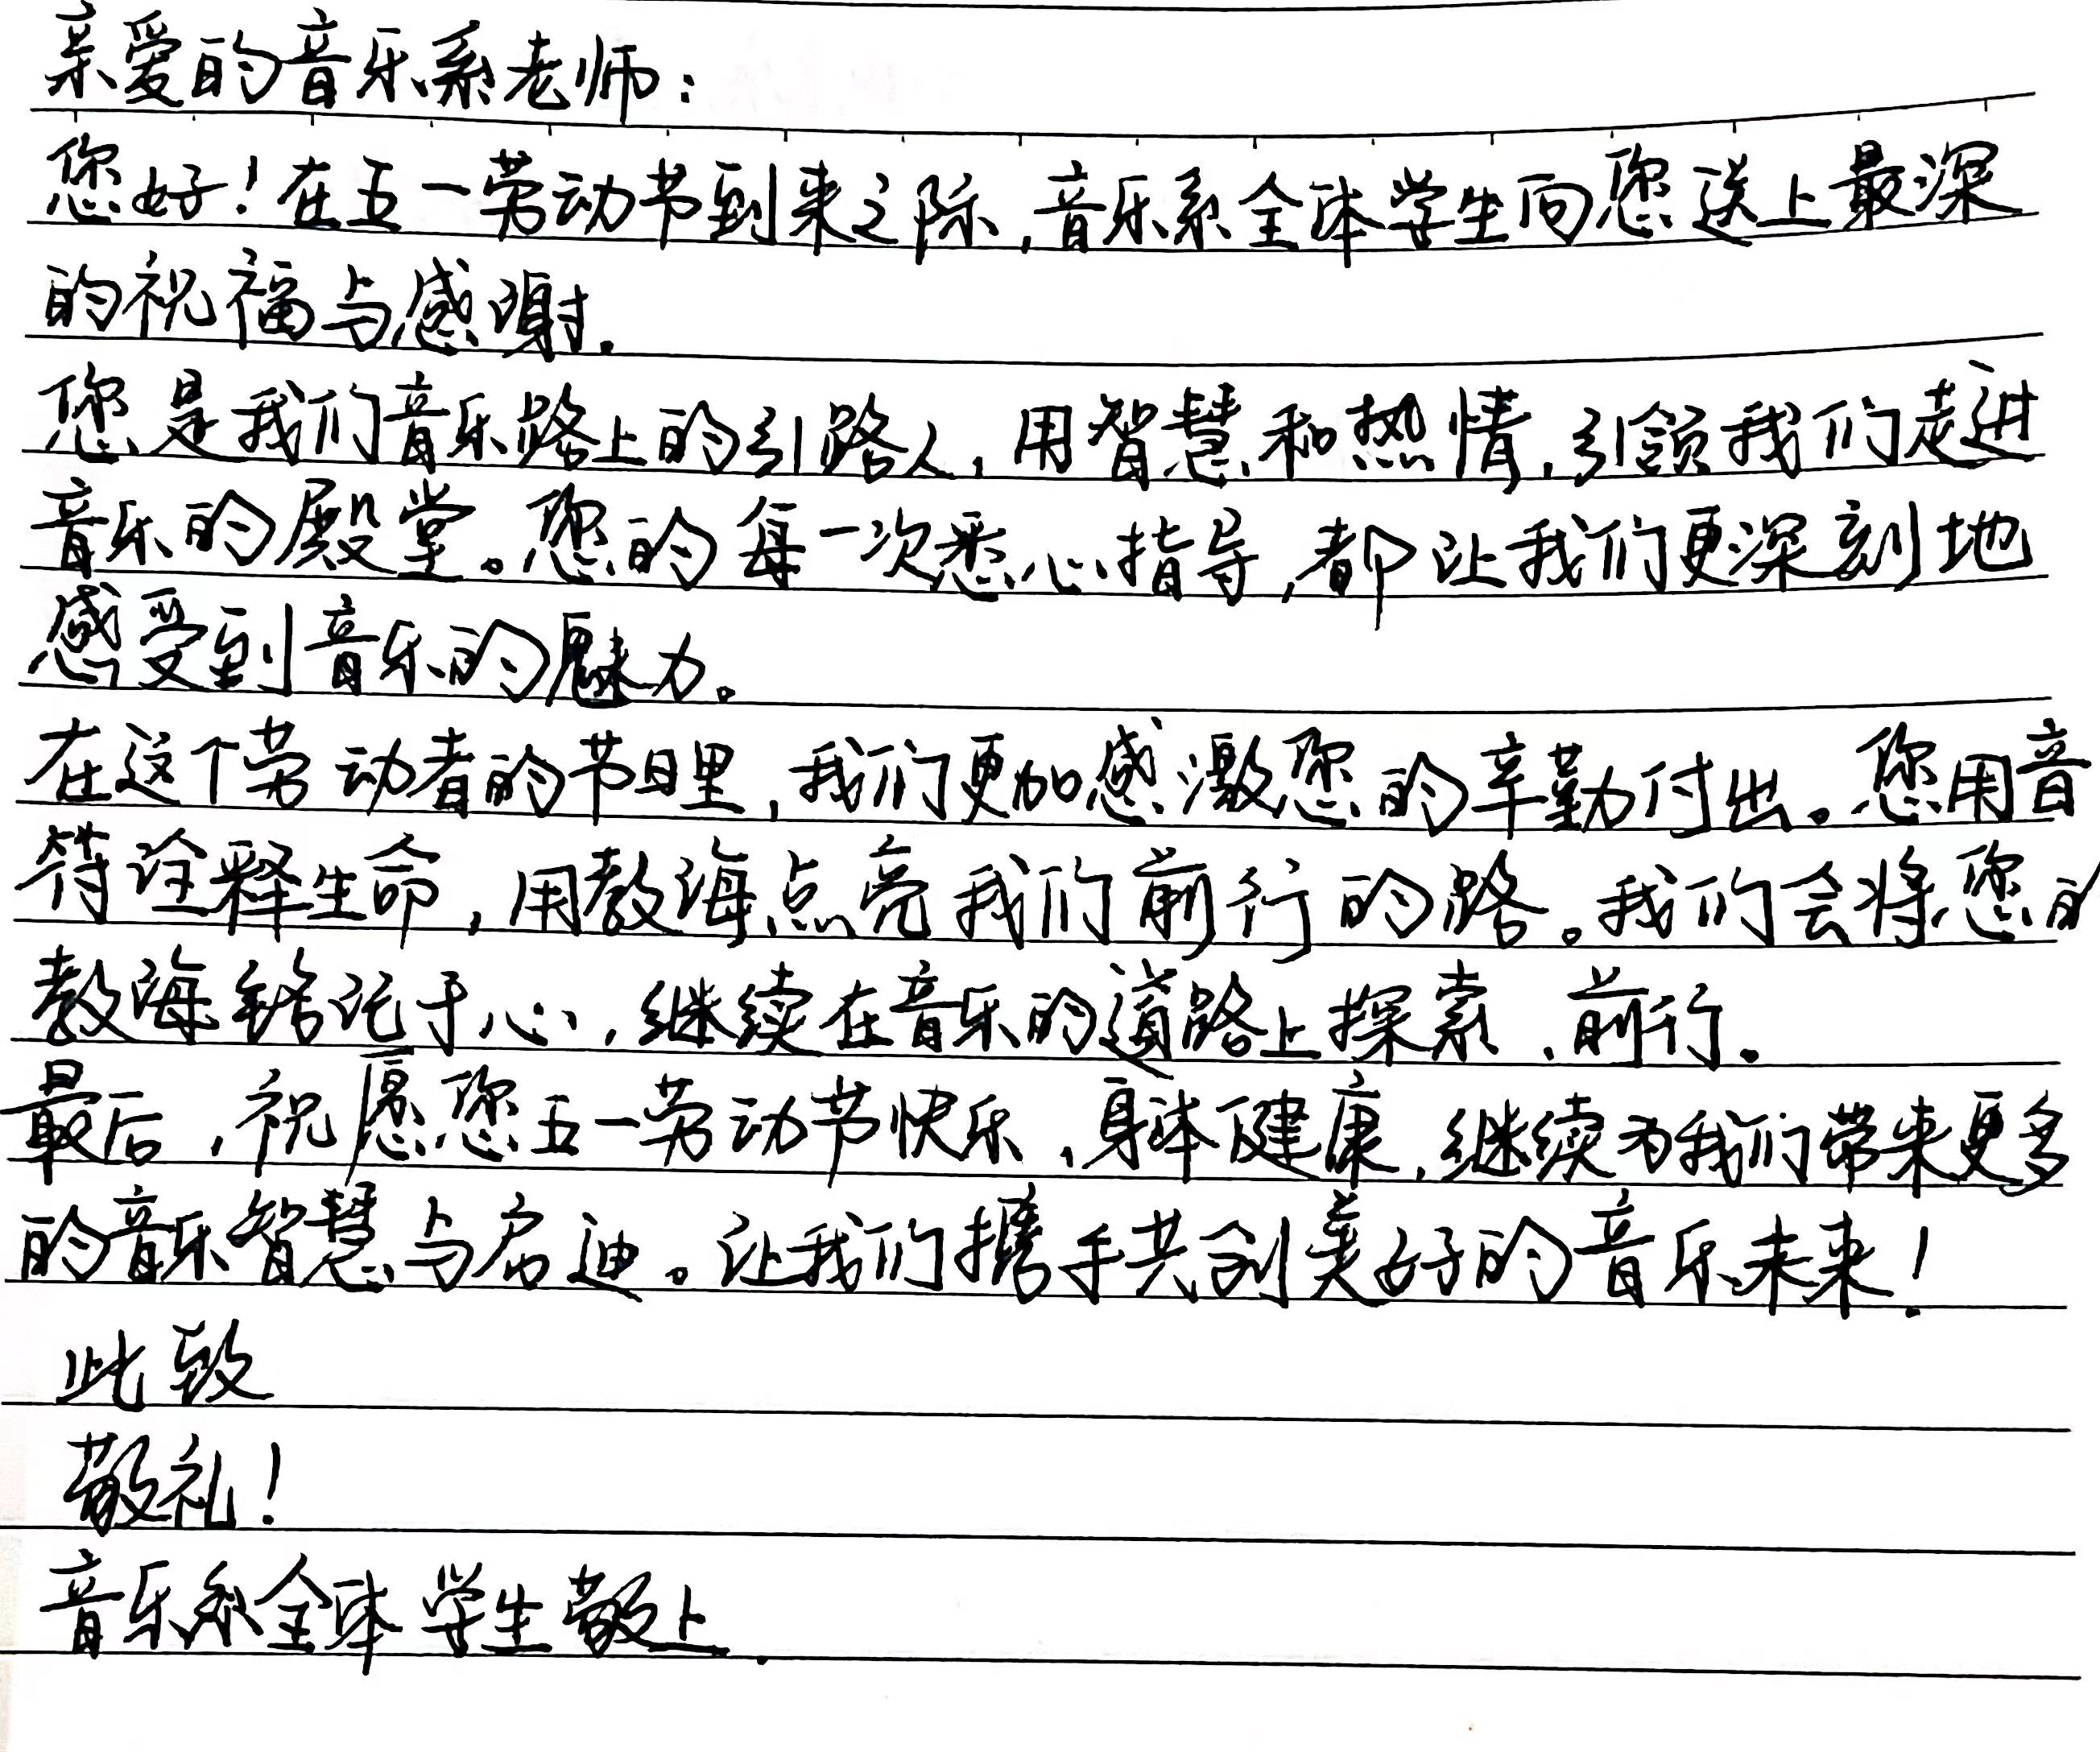 亲爱的音乐系老师：
您好！在五一劳动节到来之际，音乐系全体学生向您送上最深
的祝福与感谢。
您是我们音乐路上的引路人，用智慧和热情，引领我们走进
音乐的殿堂。您的每一次悉心指导，都让我们更深刻地
感受到音乐的魅力。
在这个劳动者的节日里，我们更加感激您的辛勤付出。您用音
符诠释生命，用教诲点亮我们前行的路。我们会将您的
教诲铭记于心，继续在音乐的道路上探索、前行。
最后，祝愿您五一劳动节快乐，身体健康，继续为我们带来更多
的音乐智慧与启迪。让我们携手共创美好的音乐未来！
此致
敬礼！
音乐系全体学生敬上.